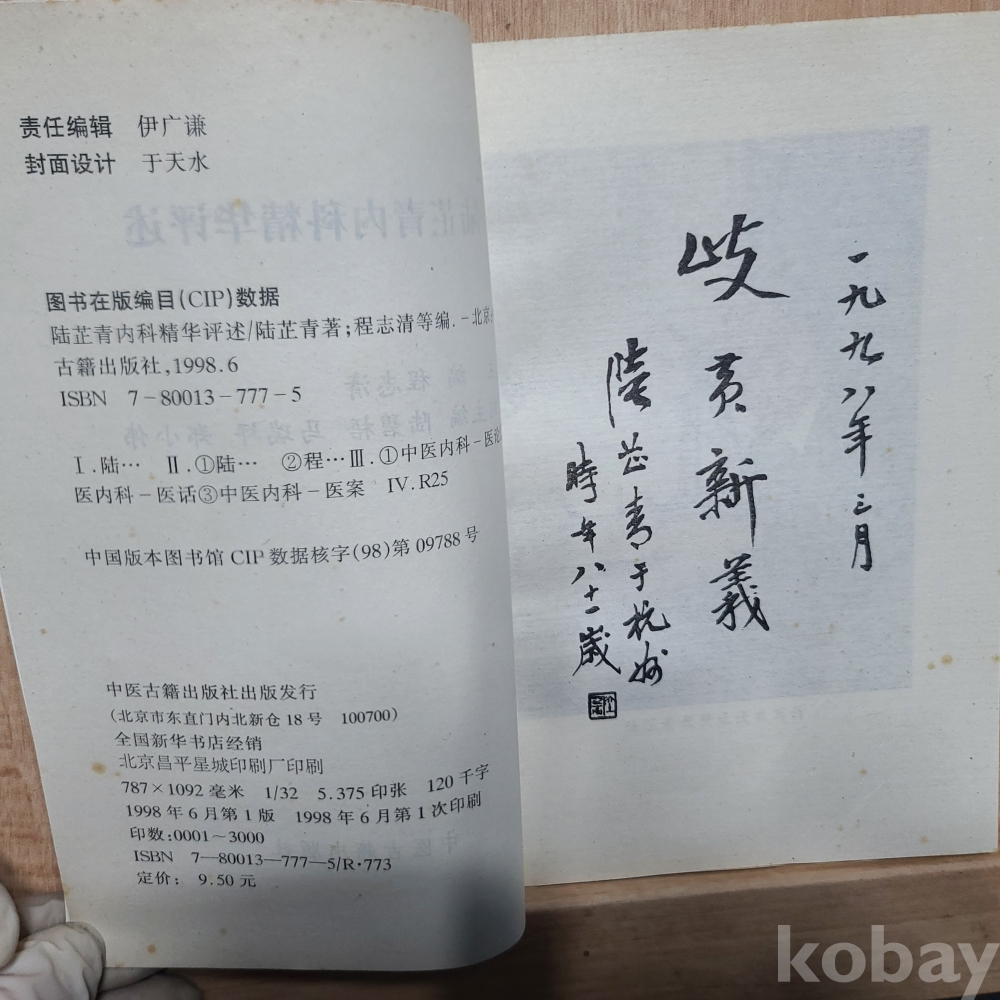 责任编辑 伊广谦
封面设计 于天水
陆芷青内科精华评述
图书在版编目(CIP)数据
陆芷青内科精华评述/陆芷青著;程志清等编.-北京:
古籍出版社,1998.6
ISBN 7-80013-777-5
Ⅰ.陆… Ⅱ.①陆… ②程…Ⅲ.①中医内科-医论
医内科-医话③中医内科-医案 Ⅳ.R25
中国版本图书馆CIP数据核字(98)第09788号
中医古籍出版社出版发行
(北京市东直门内北新仓18号 100700)
全国新华书店经销
北京昌平星城印刷厂印刷
787×1092毫米 1/32 5.375印张 120千字
1998年6月第1版 1998年6月第1次印刷
印数:0001~3000
ISBN 7—80013—777—5/R·773
定价: 9.50元
一九九八年三月
岐黄新義
陸芷青于杭州
時年八十一歲
kobay